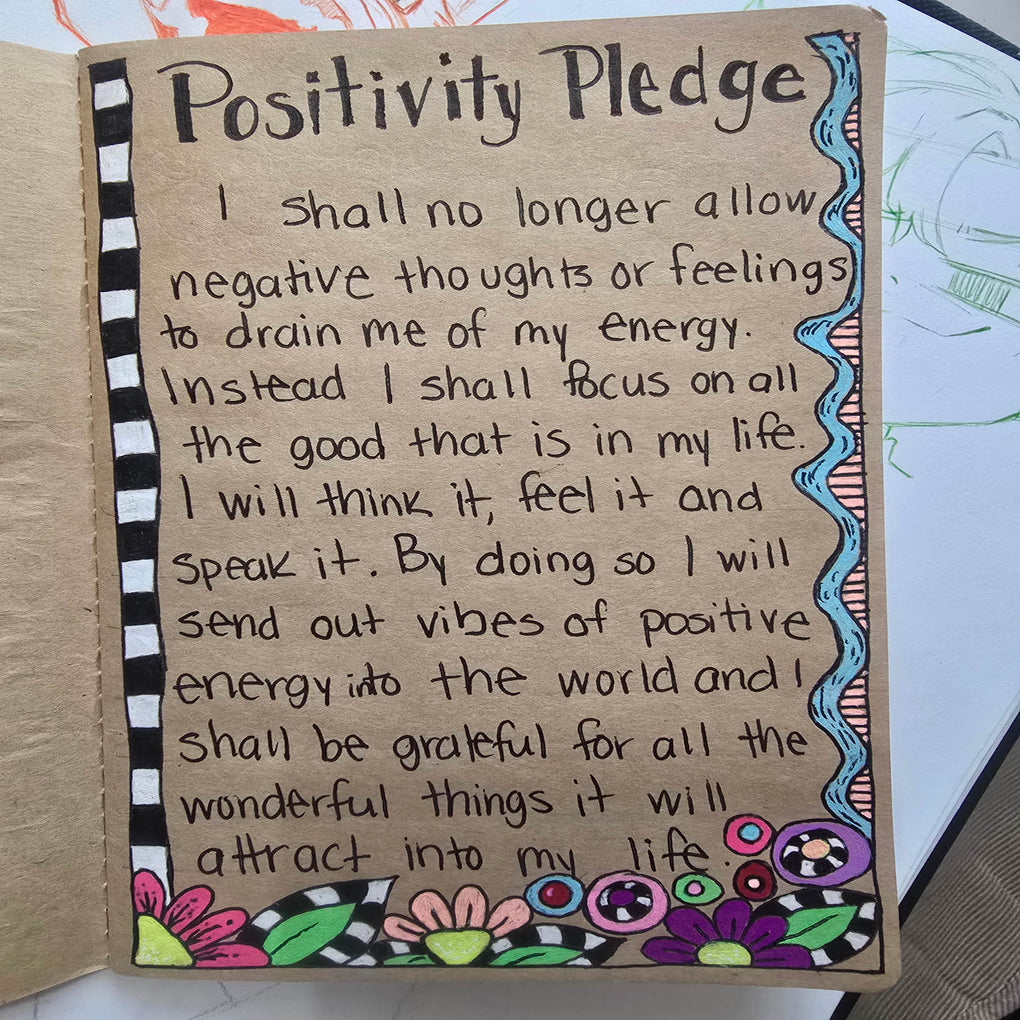 Positivity Pledge
I shall no longer allow
negative thoughts or feelings
to drain me of my energy.
Instead I shall focus on all
the good that is in my life.
I will think it, feel it and
speak it. By doing so I will
send out vibes of positive
energy into the world and I
shall be grateful for all the
wonderful things it will
attract into my life.